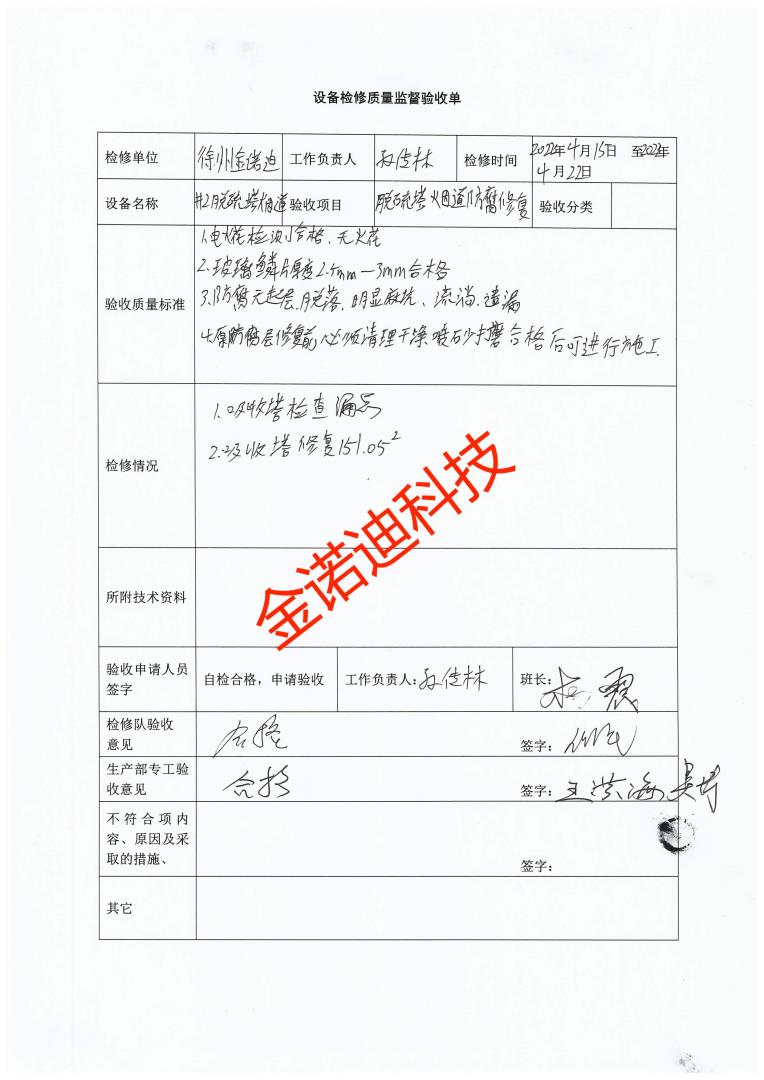 设备检修质量监督验收单
检修单位 徐州金诺迪 工作负责人 孙传林 检修时间 2022年4月15日 至2022年4月22日
设备名称 #2脱硫塔烟道 验收项目 脱硫塔烟道防腐修复 验收分类
验收质量标准
1.电火花检测合格、无火花
2.玻璃鳞片厚度2.5mm—3mm合格
3.防腐无起层、脱落、明显麻坑、流淌、遗漏
4.原防腐层修复前必须清理干净喷砂打磨合格后可进行施工
检修情况
1.吸收塔检查漏点
2.吸收塔修复151.05²
金诺迪科技
所附技术资料
验收申请人员签字 自检合格，申请验收 工作负责人:孙传林 班长:
检修队验收意见 合格 签字:
生产部专工验收意见 合格 签字:
不符合项内容、原因及采取的措施、 签字:
其它